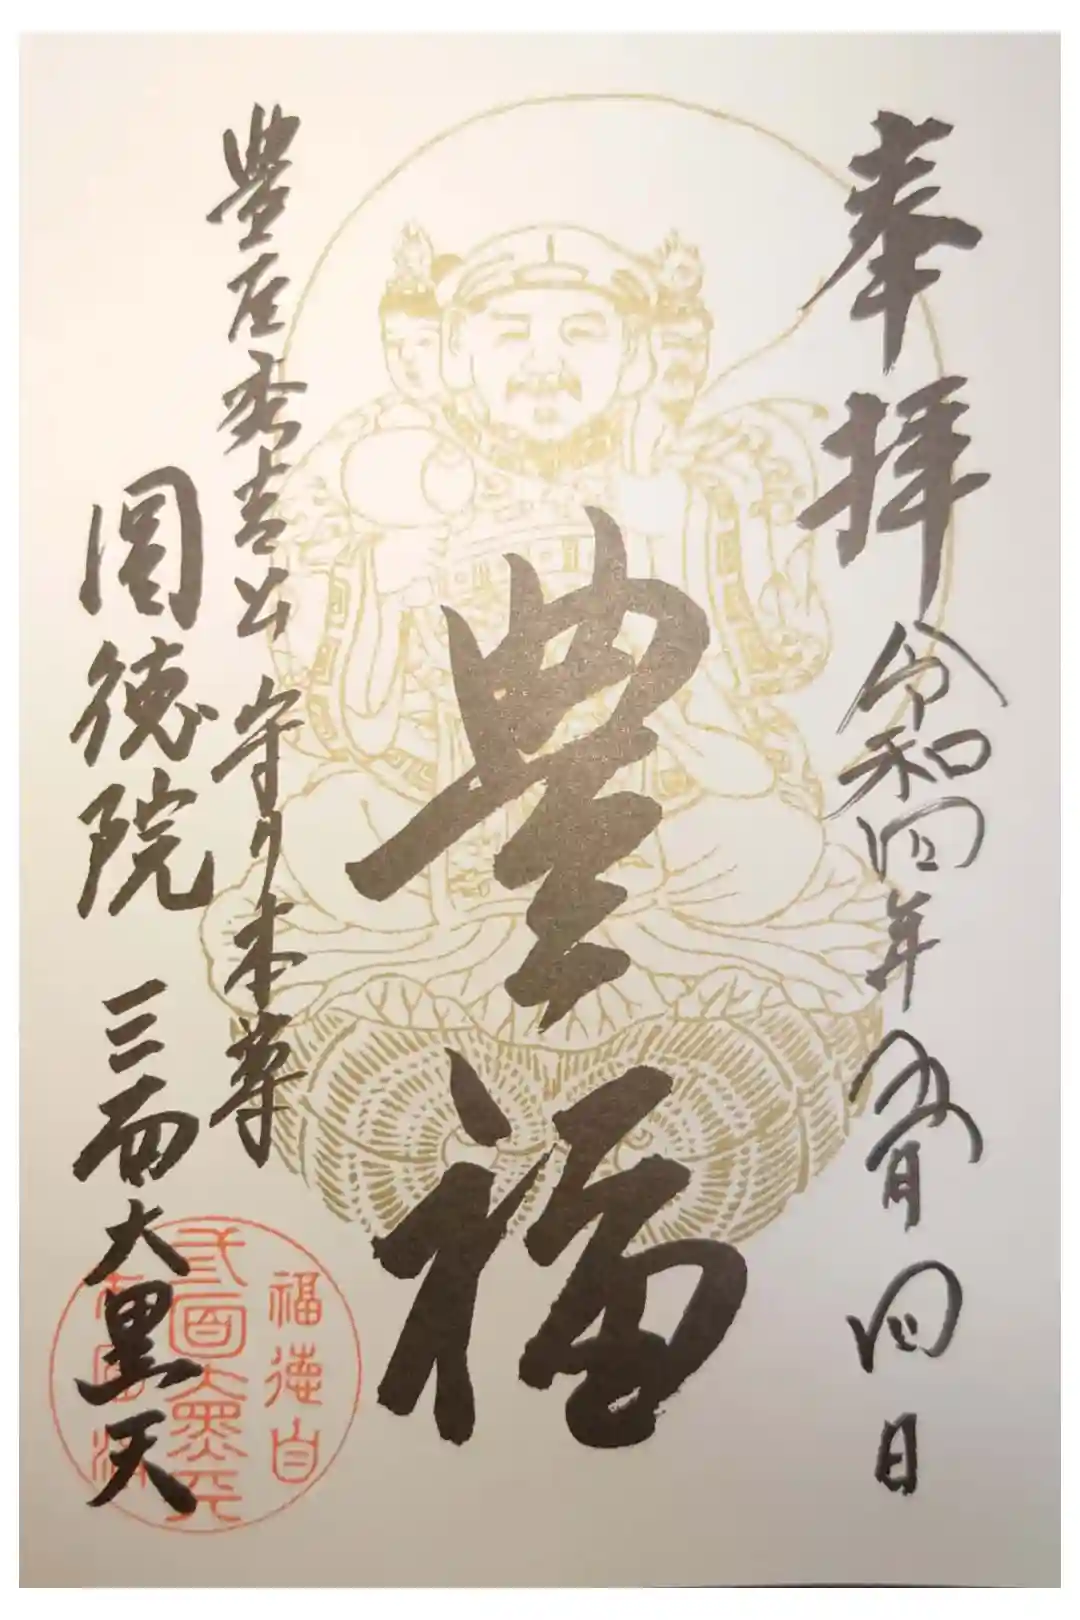 奉拝
令和四年五月四日
豊福
豊臣秀吉公守り本尊
圓徳院 三面大黒天
福徳自
三面大黒天